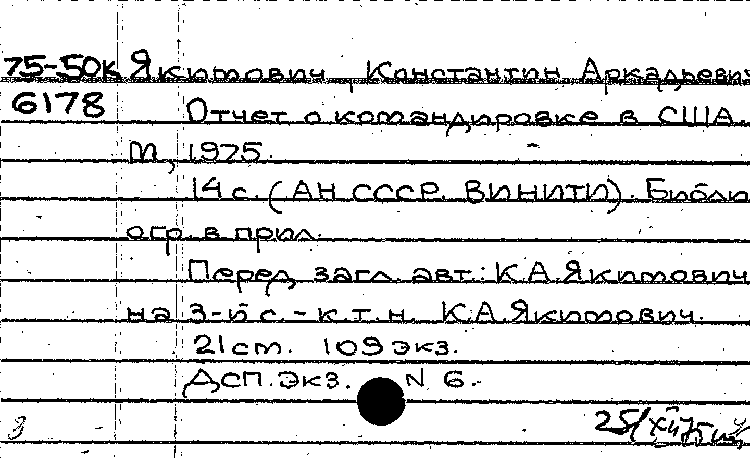 75-50К Якимович, Константин Аркадьевич
6178 Отчет о командировке в США.
М, 1975.
14 с. (АН СССР. ВИНИТИ). Библи
огр. в прил.
Перед загл. авт.: К.А.Якимович
на 3-й с. - к.т.н. К.А.Якимович.
21 см. 109 экз.
Дсп. экз. N 6.
25/XII 75